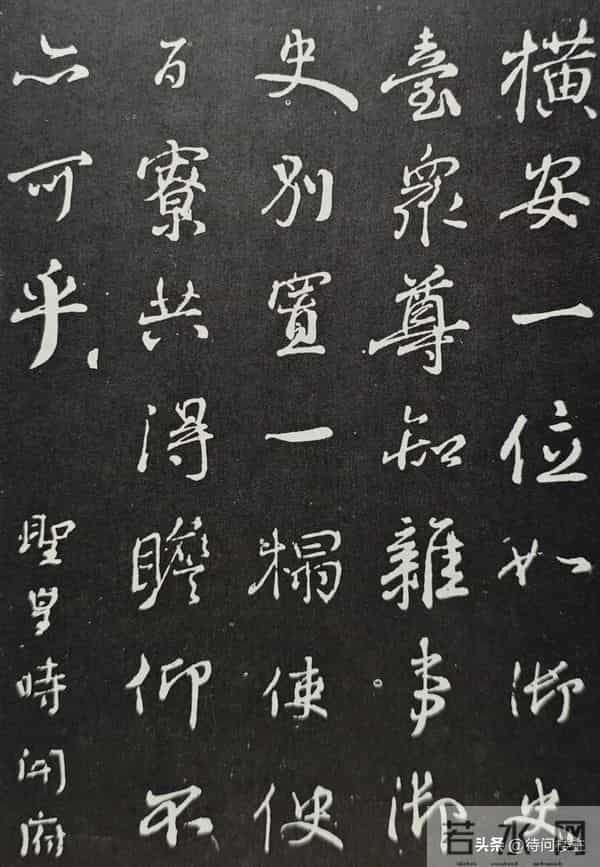 橫安一位如御史
臺衆尊知雜事御
史別置一榻使使
百寮共得瞻仰不
亦可乎
聖皇時開府
若水网
头条 @待问楼主